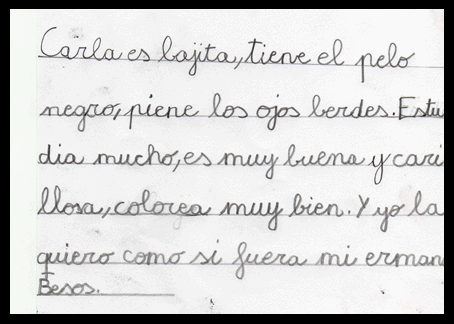 Carla es bajita, tiene el pelo
negro, piene los ojos berdes. Estu
dia mucho, es muy buena y cari
llosa, colorea muy bien. Y yo la
quiero como si fuera mi erman
Besos.